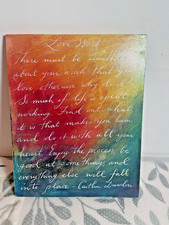 Love Work
There must be something
about your work that you
love otherwise why do it?
So much of life is spent
working. Find out what
it is that makes you hum
and do it with all your
heart. Enjoy the process, be
good at something, and
everything else will fall
into place - Caitlin